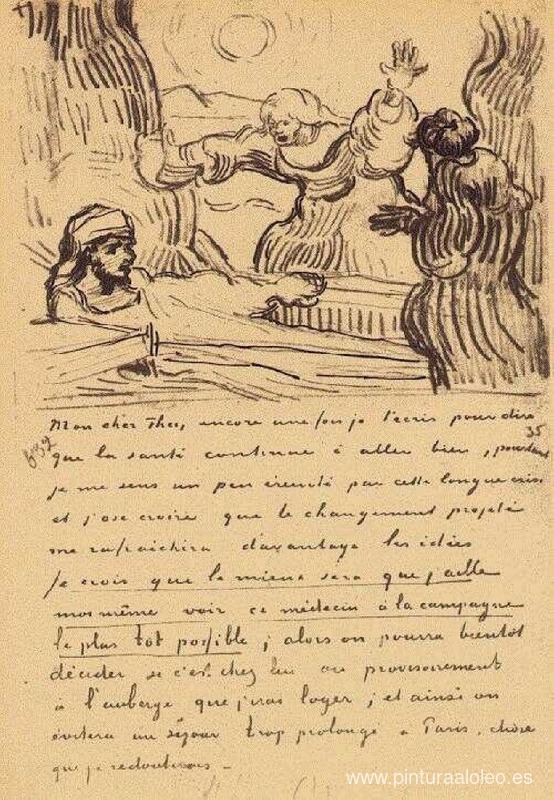 Mon cher Theo, encore une fois je t'ecris pour dire
35
632
que la santé continue à aller bien, pourtant
je me sens un peu éreinté par cette longue crise
et j'ose croire que le changement projeté
me rafraichira davantage les idées
Je crois que le mieux sera que j'aille
moi même voir ce médecin à la campagne
le plus tôt possible ; alors on pourra bientôt
décider si c'est chez lui ou provisoirement
à l'auberge que j'irai loger ; et ainsi on
évitera un séjour trop prolongé à Paris, chose
que je redouterais –
www.pinturaaloleo.es